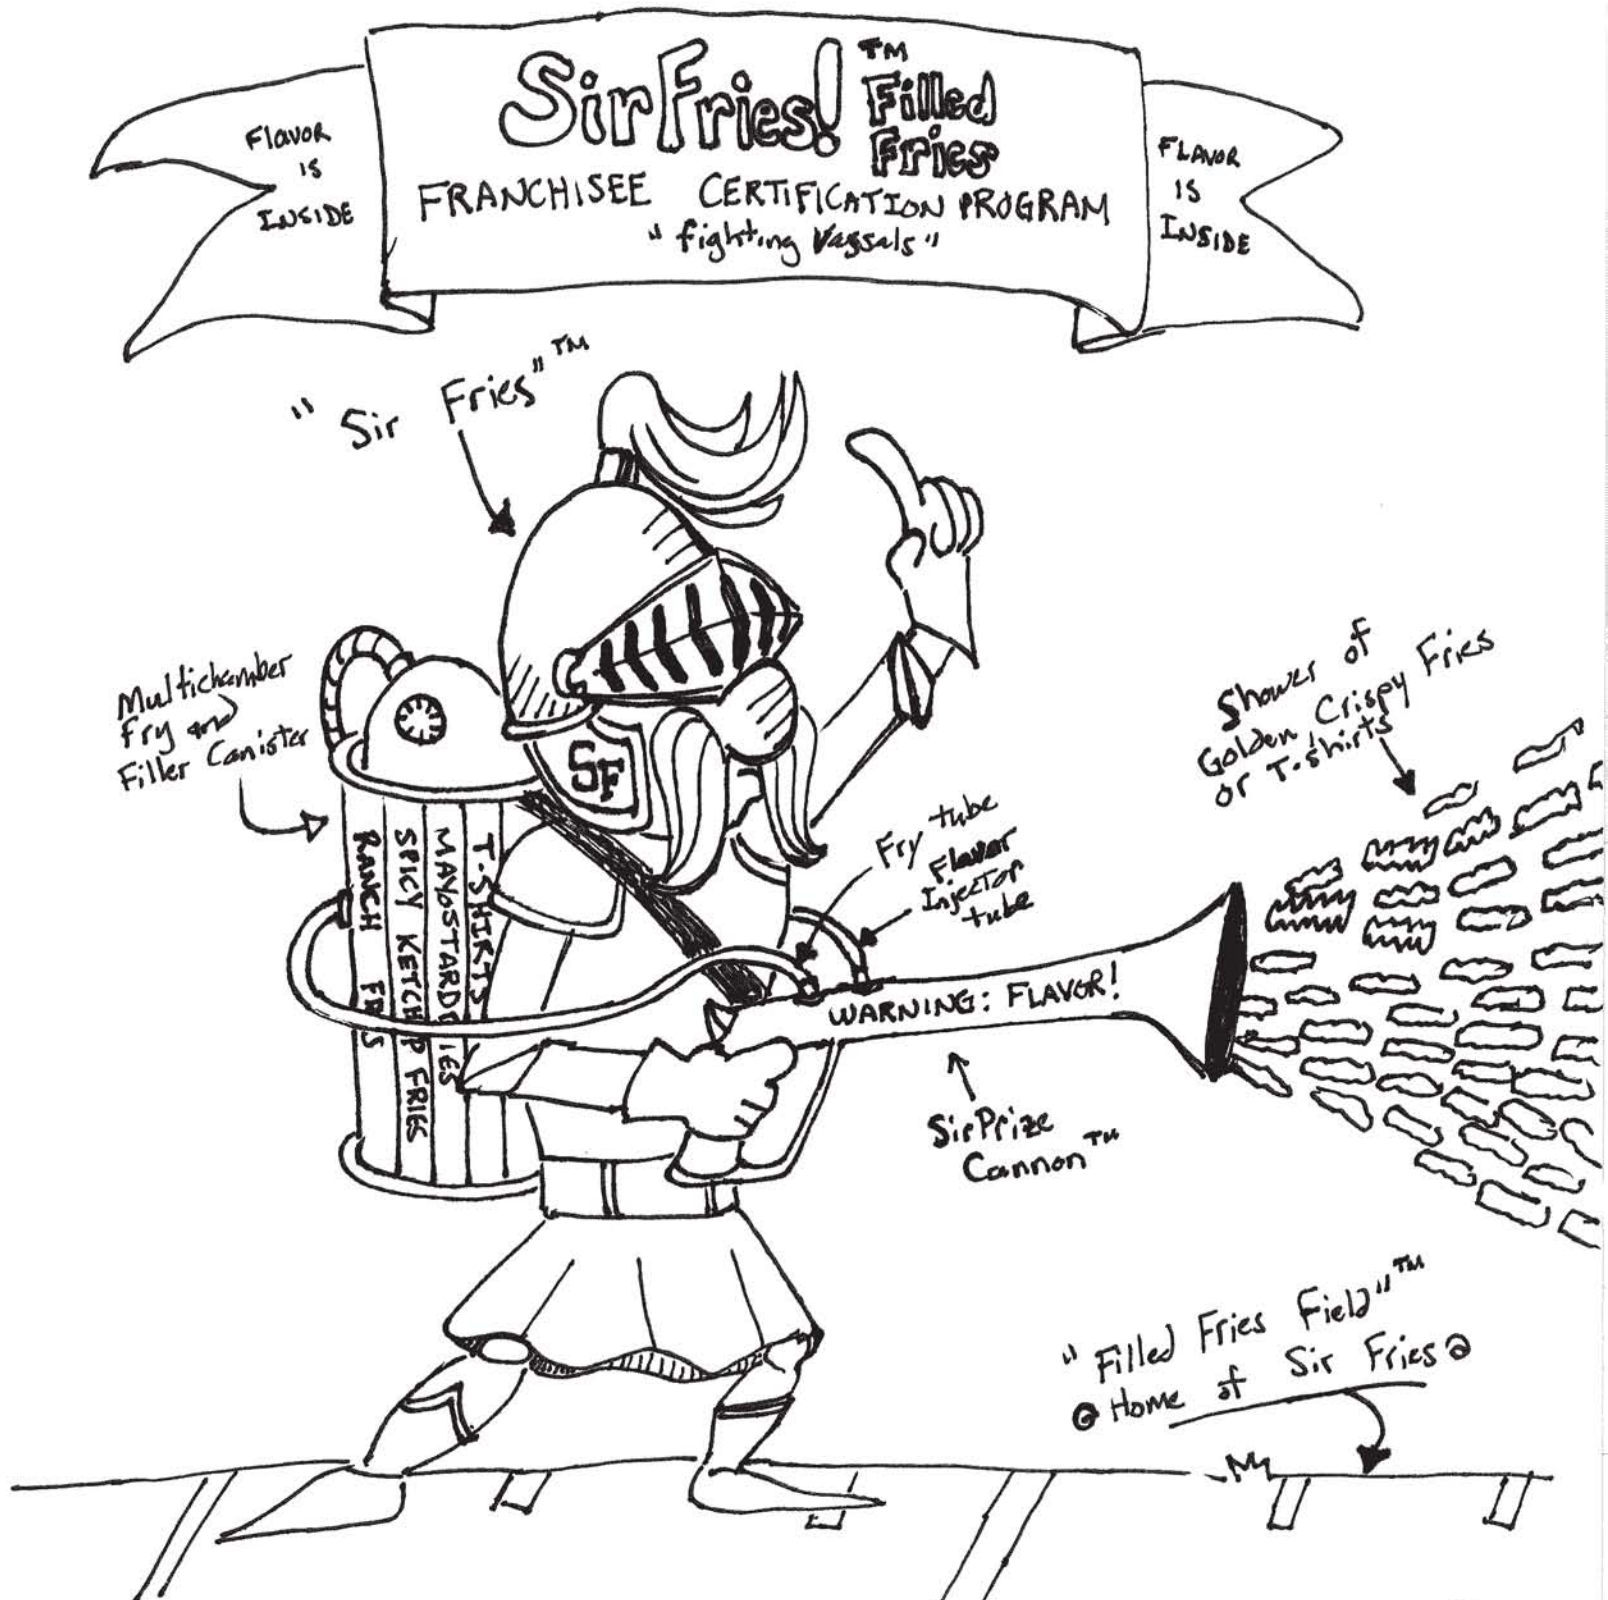 Flavor
is
Inside
SirFries!™
Filled
Fries
FRANCHISEE CERTIFICATION PROGRAM
"fighting Vassals"
FLAVOR
IS
INSIDE
"Sir Fries"™
Multichamber
Fry and
Filler Canister
SF
RANCH FRIES
SPICY KETCHUP FRIES
MAYOSTARD FRIES
T-SHIRTS
Fry tube
Flavor
Injector
tube
WARNING: FLAVOR!
SirPrize
Cannon™
Shower of
Golden, Crispy Fries
or T-shirts
"Filled Fries Field"™
Home of Sir Fries